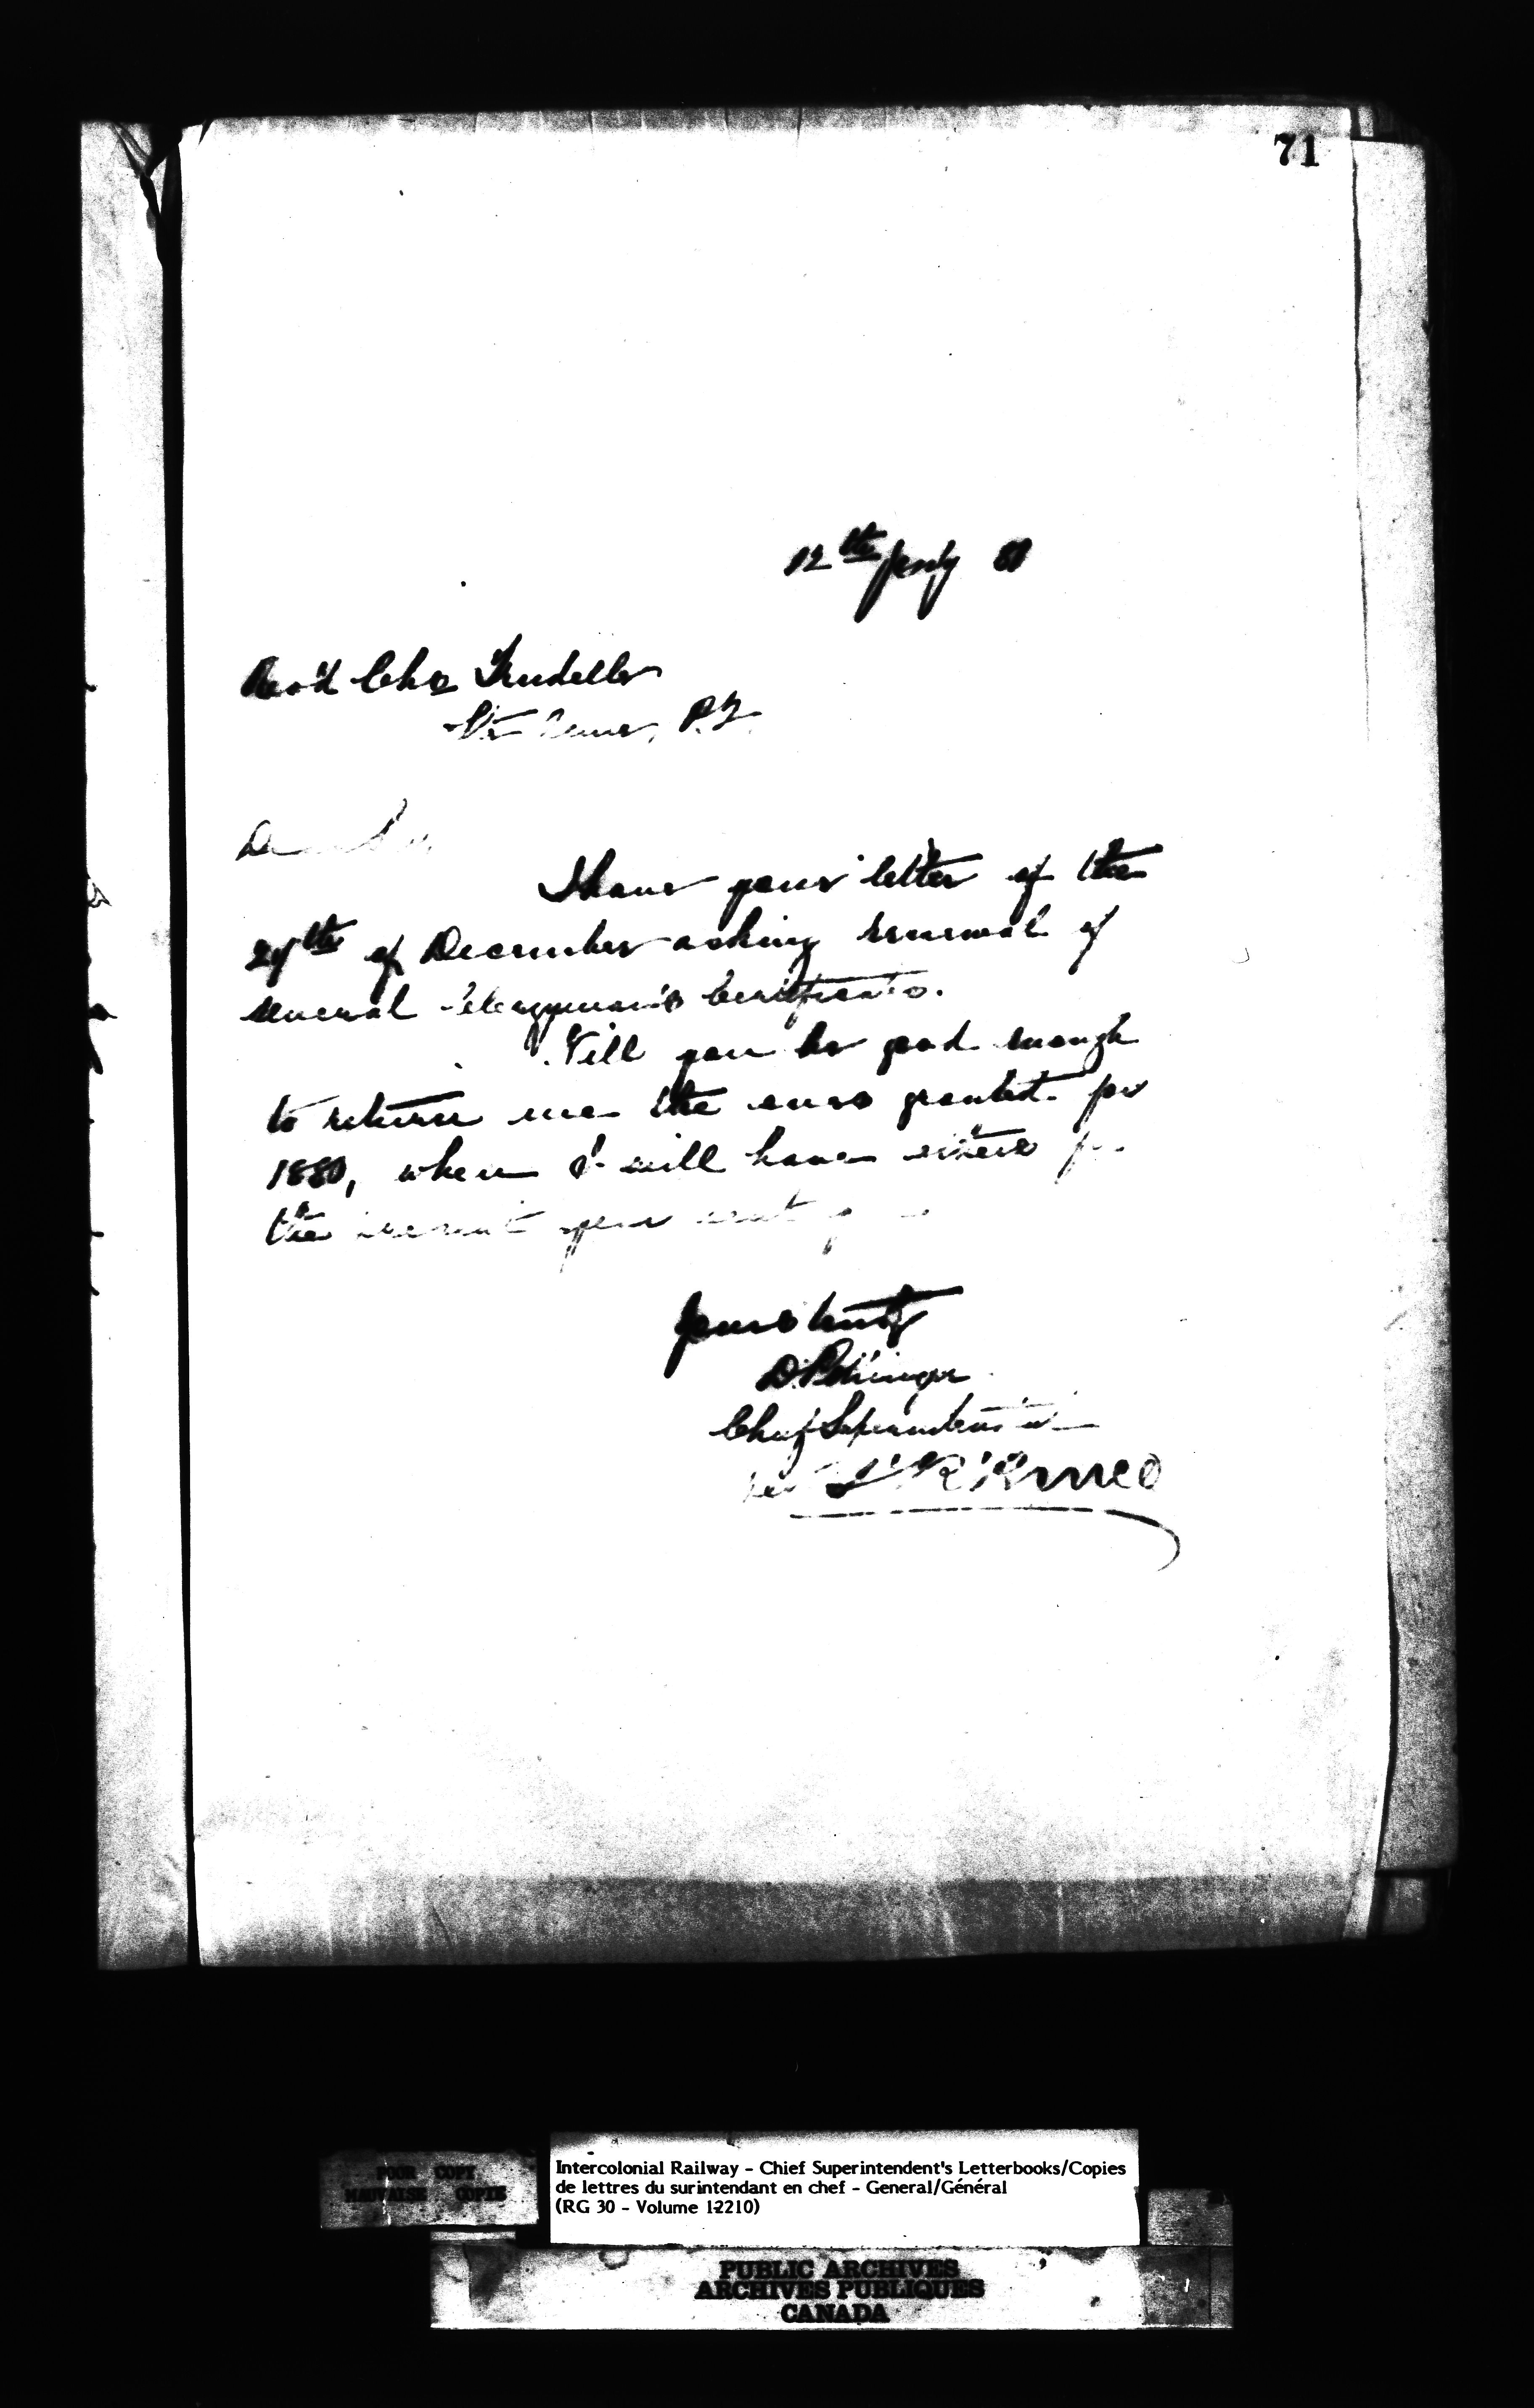 71
12th Jany 81
Rev'd Chs Trudelle
Ste P.Q.
Dear Sir
I have your letter of the
29th of December asking renewal of
several Clergyman's Certificates.
Will you be good enough
to return me the ones granted for
1880, when I will have others for
the present year sent you
Yours truly
D. Pottinger
Chief Superintendent
per
POOR COPY
MAUVAISE COPIE
Intercolonial Railway - Chief Superintendent's Letterbooks/Copies
de lettres du surintendant en chef - General/Général
(RG 30 - Volume 12210)
PUBLIC ARCHIVES
ARCHIVES PUBLIQUES
CANADA